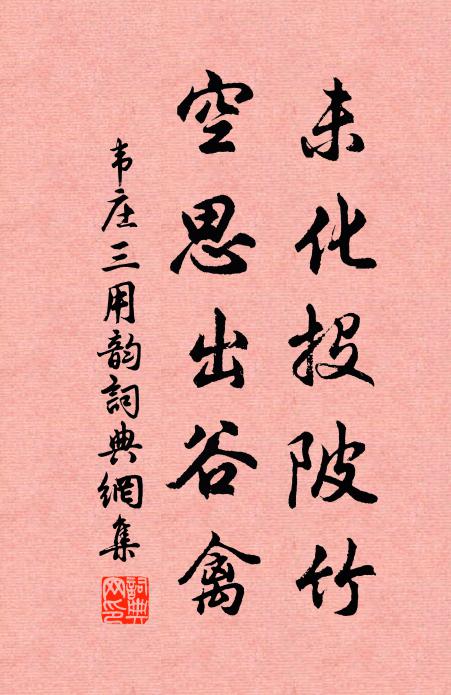 未化投陂竹
空思出谷禽
韦庄三用韵詞典網集
詞典
网印